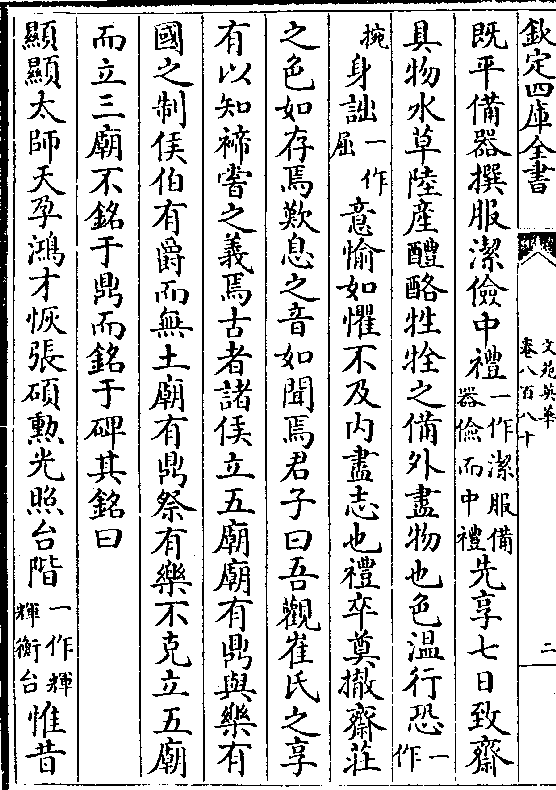 欽定四庫全書
文苑英華
卷八百八十
二
既平備器撰服潔儉中禮一作潔服備器儉而中禮先享七日致齋
具物水草陸產醴酪牲牷之備外盡物也色溫行恐一作
捥身詘一作屈意愉如懼不及内盡志也禮卒奠撤齋莊
之色如存焉歎息之音如聞焉君子曰吾觀崔氏之享
有以知禘嘗之義焉古者諸侯立五廟廟有鼎與樂有
國之制侯伯有爵而無土廟有鼎祭有樂不克立五廟
而立三廟不銘于鼎而銘于碑其銘曰
顯顯太師天孕鴻才恢張碩勲光照台階一作輝輝衡台惟昔